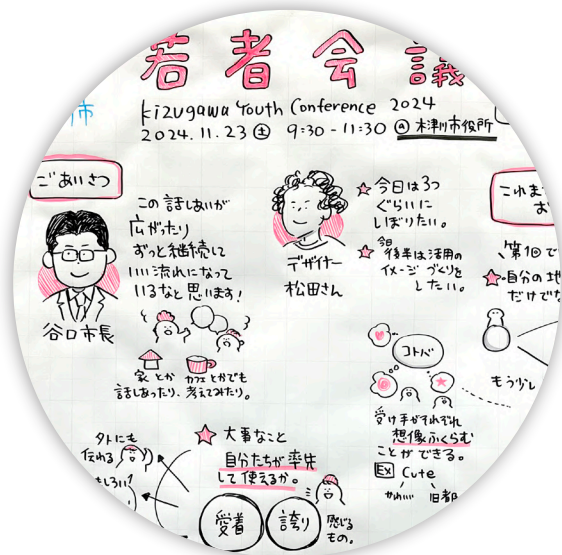 若者会議
市
Kizugawa Youth Conference 2024
2024.11.23 土 9:30-11:30 @木津川市役所
ごあいさつ
この話しあいが
広がったり
ずっと継続して
いい流れになって
いるなと思います!
谷口市長
家とか カフェとかでも
話しあったり、考えてみたり。
デザイナー
松田さん
☆今日は3つ
ぐらいに
しぼりたい。
☆今日
後半は活用の
イメージづくりを
したい。
これま
お
第1回で
☆自分の地
だけでな
もう少し
コトバ
受け手がそれぞれ
想像ふくらむ
ことができる。
Ex Cute
かわいい 旧都
☆大事なこと
自分たちが率先
して使えるか。
外にも
伝わる
もしろい!
愛着 誇り
感じる
もの。